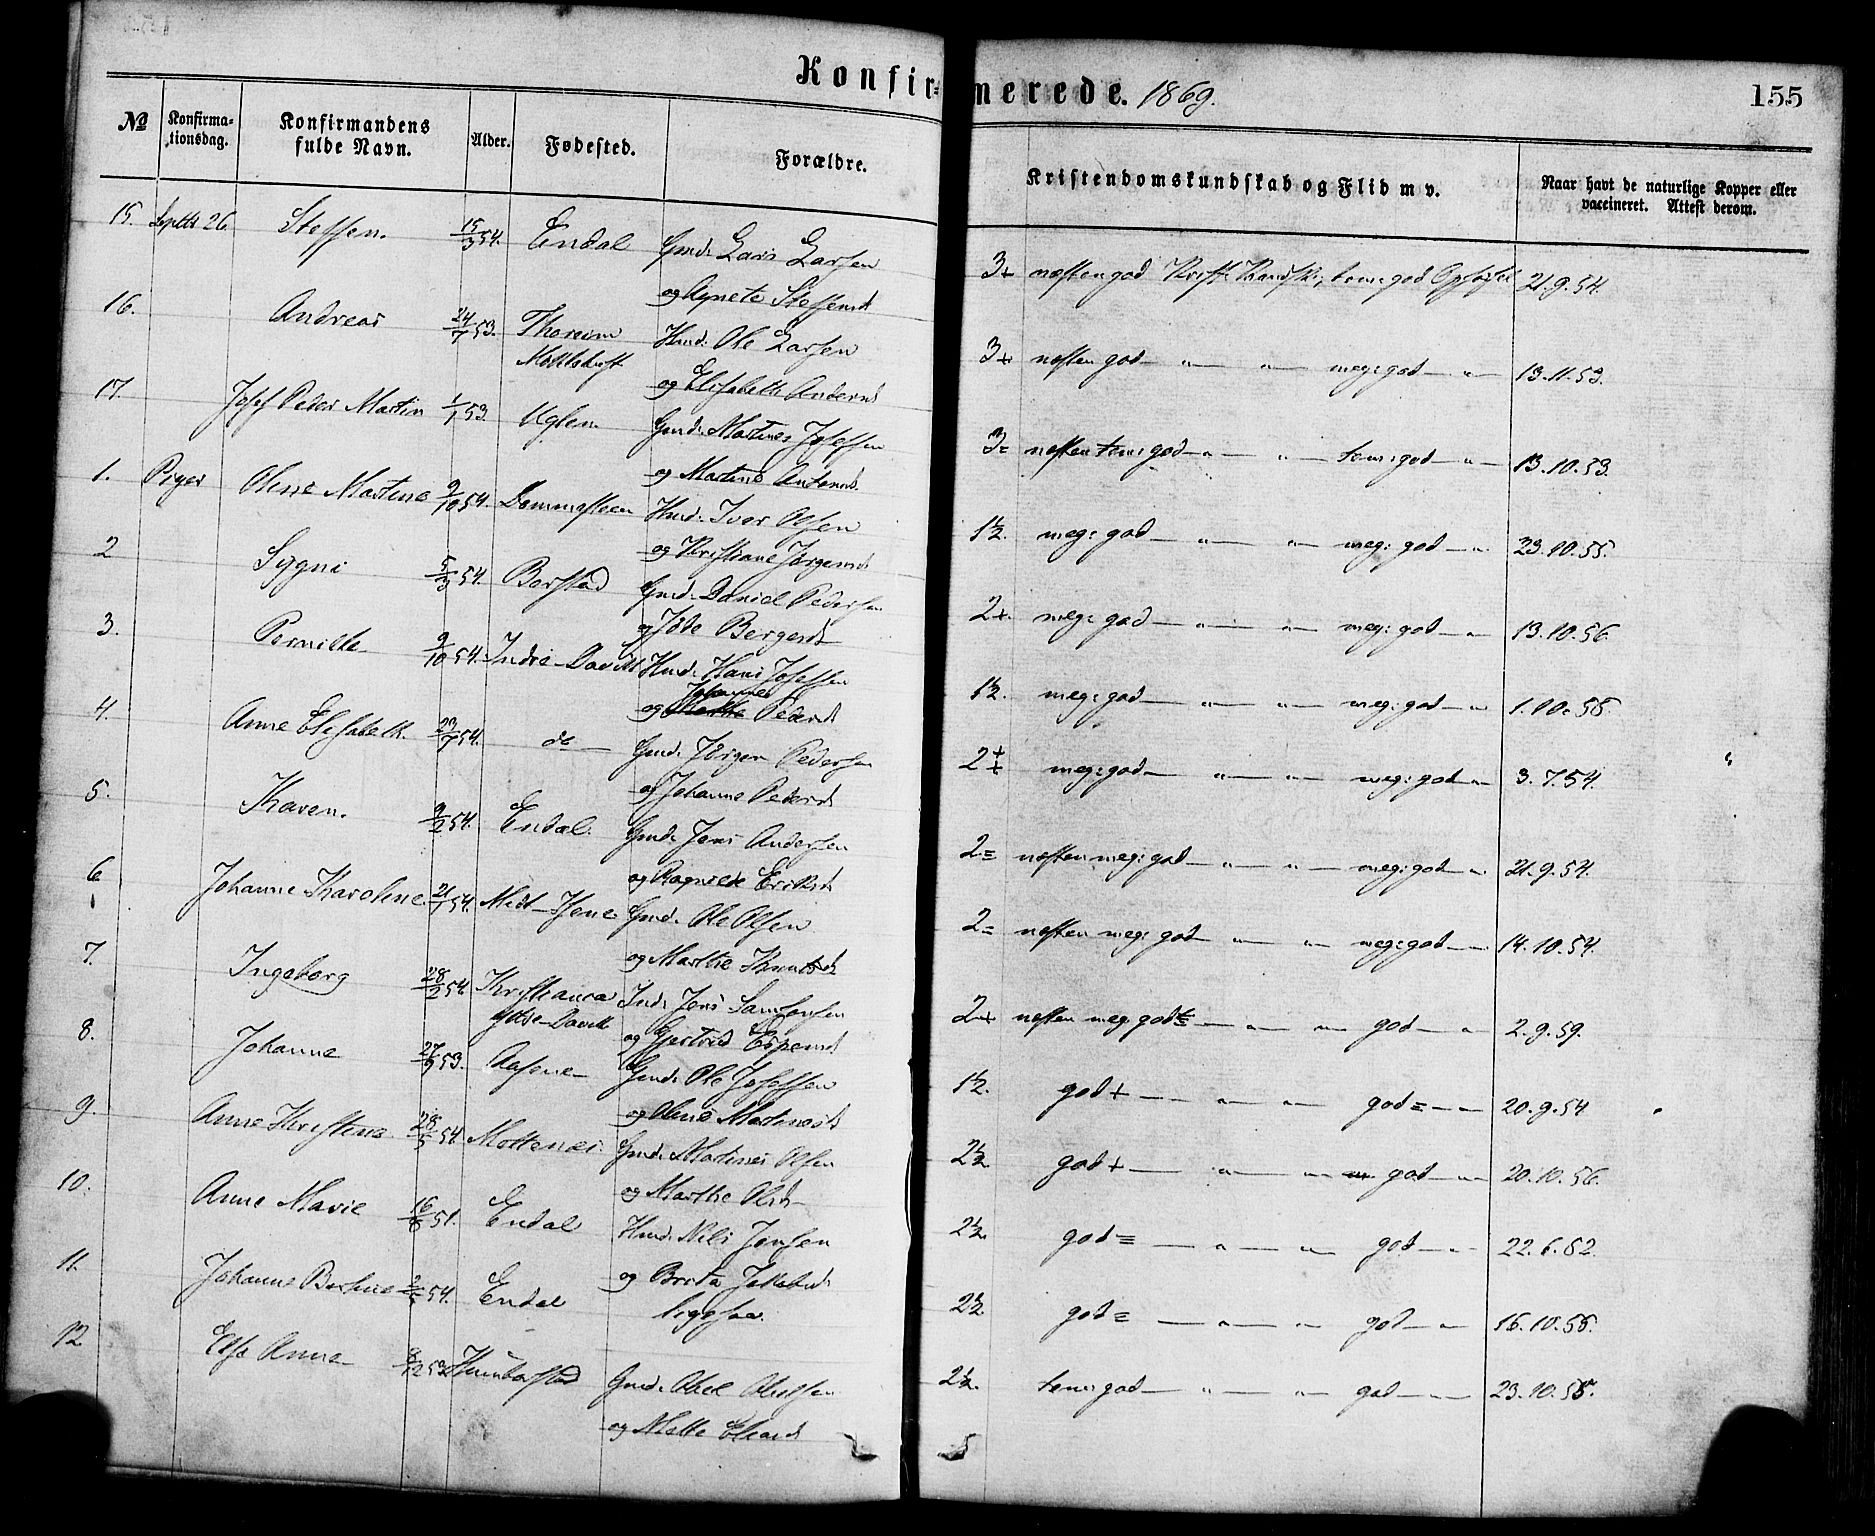 Konfirmerede. 1869.
155
№ Konfirmationsdag. Konfirmandens fulde Navn. Alder. Fødested. Forældre. Kristendomskundskab og Flid m v. Naar havt de naturlige Kopper eller vaccineret. Attest derom.
15. Septbr 26 Steffen. 15/3 54. Endal Gmd. Lars Larsen 3+ næsten god Krist. Kundsk., tem: god Opførsel 21.9.54.
og Agnete Steffensd
16. Andreas 24/7 53. Hmd. Ole Larsen 3+ næsten god — " — " — meg: god — " — 13.11.53.
og Elisabeth Andersd
17. Josef Peder Martin 1/1 53. Uglen Gmd. Martines Josefsen 3= næsten tem: god — " — " — tem: god — " — 13.10.53.
og Martine Antonsd.
1. Piger Oline Martine 9/10 54. Dommesteen Hmd. Iver Olsen 1½. meg: god — " — " — meg: god — " 23.10.55.
og Kristiane Jørgensd
2 Sygni 5/3 54. Borstad Gmd. Daniel Pedersen 2+. meg: god — " — " — meg: god — " 13.10.56.
og Bergesd
3. Pernille 9/10 54. Indre-Davik Hmd. Hans Josefsen 1½. meg: god — " — " — meg: god — " 1.10.55.
Johanne
og Pedersd
4. Anne Elisabeth 23/7 54. do — Gmd. Jørgen Pedersen 2‡ meg: god — " — " — meg: god — " 3.7.54.
og Johanne Pedersd
5. Karen. 9/2 54. Endal. Gmd. Jens Andersen 2= næsten meg: god — " — " — meg: god — " 21.9.54.
og Ragnilde Eriksd
6 Johanne Karoline. 21/7 54. Midt- Gmd. Ole Olsen 2= næsten meg: god — " — " — meg: god — 14.10.54.
og Marthe Knutsd
7. Ingeborg 28/2 54. Jens Samsonsen 2+ næsten meg: god — " — " god — " 2.9.59.
Ytre-Davik og Gjertrud Espensd
8. Johanne 27/9 53. Aasene Gmd. Ole Josefsen 1½. god + — " — " god = — " 20.9.54.
og Oline Martinesd
9. Anne Kristine 28/5 54. Gmd. Martines Olsen 2½ god + — " — " god — " 20.10.56.
og Marthe Olsd
10. Anne Marie 16/8 51. Endal Hmd. Nils Jensen 2½. god = — " — " god — " 22.6.52.
og Brita Jakobsd.
11. Johanne 2/5 54. Endal 2½. god = — " — " god — " 16.10.55.
12 Else Anne 8/12 53. Gmd. 2½. tem: god — " — " god — " 23.10.55.
og Mette